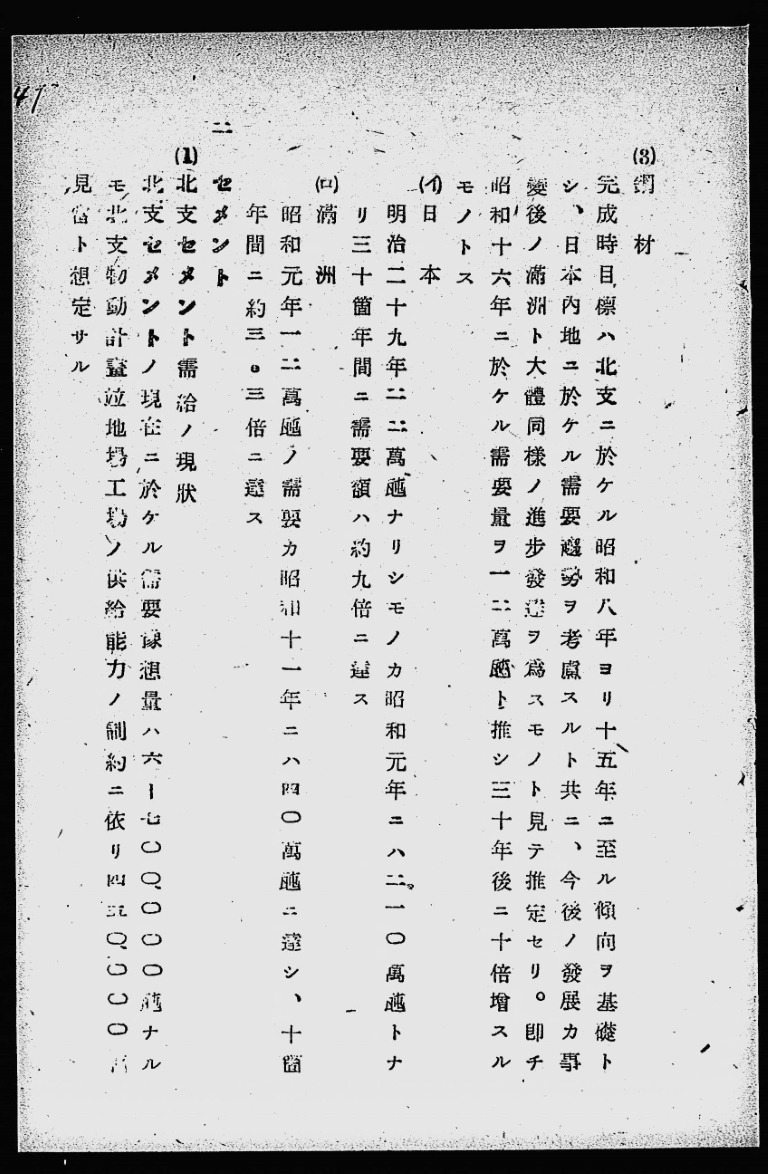 47
(3)鋼材
完成時目標ハ北支ニ於ケル昭和八年ヨリ十五年ニ至ル傾向ヲ基礎ト
シ、日本内地ニ於ケル需要趨勢ヲ考慮スルト共ニ、今後ノ發展カ事
變後ノ滿洲ト大體同樣ノ進步發達ヲ爲スモノト見テ推定セリ。卽チ
昭和十六年ニ於ケル需要量ヲ一二萬瓲ト推シ三十年後ニ十倍增スル
モノトス
(イ)日本
明治二十九年二二萬瓲ナリシモノカ昭和元年ニハ二一〇萬瓲トナ
リ三十箇年間ニ需要額ハ約九倍ニ達ス
(ロ)滿洲
昭和元年一二萬瓲ノ需要カ昭和十一年ニハ四〇萬瓲ニ達シ、十箇
年間ニ約三。三倍ニ達ス
二セメント
(1)北支セメント需給ノ現狀
北支セメントノ現在ニ於ケル需要豫想量ハ六ー七〇〇,〇〇〇瓲ナル
モ北支物動計畫竝地場工場ノ供給能力ノ制約ニ依リ四五〇,〇〇〇
見當ト想定サル